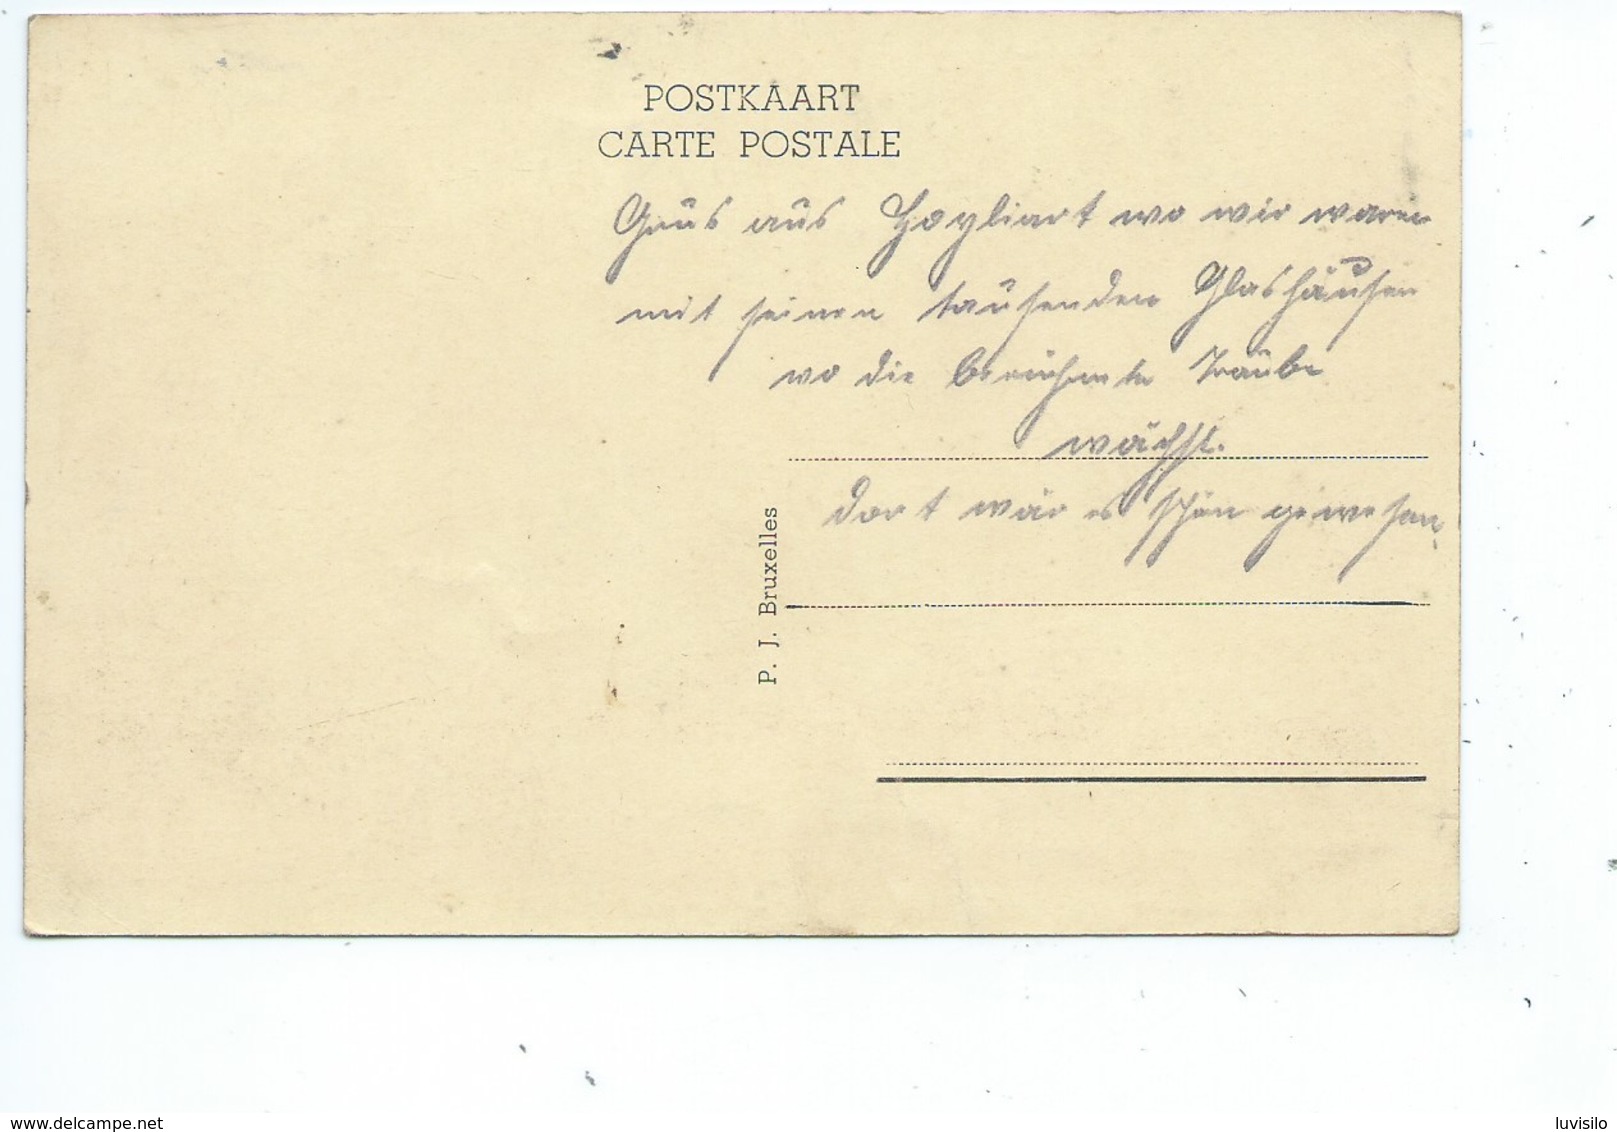 POSTKAART
CARTE POSTALE
Grüs aus Hoyliart wo wir waren
mit seinen tausenden Glashäusen
wo die berühmte Traube
wächst.
dort wär es schön gewesen,
P. J. Bruxelles
www.delcampe.net
luvisilo